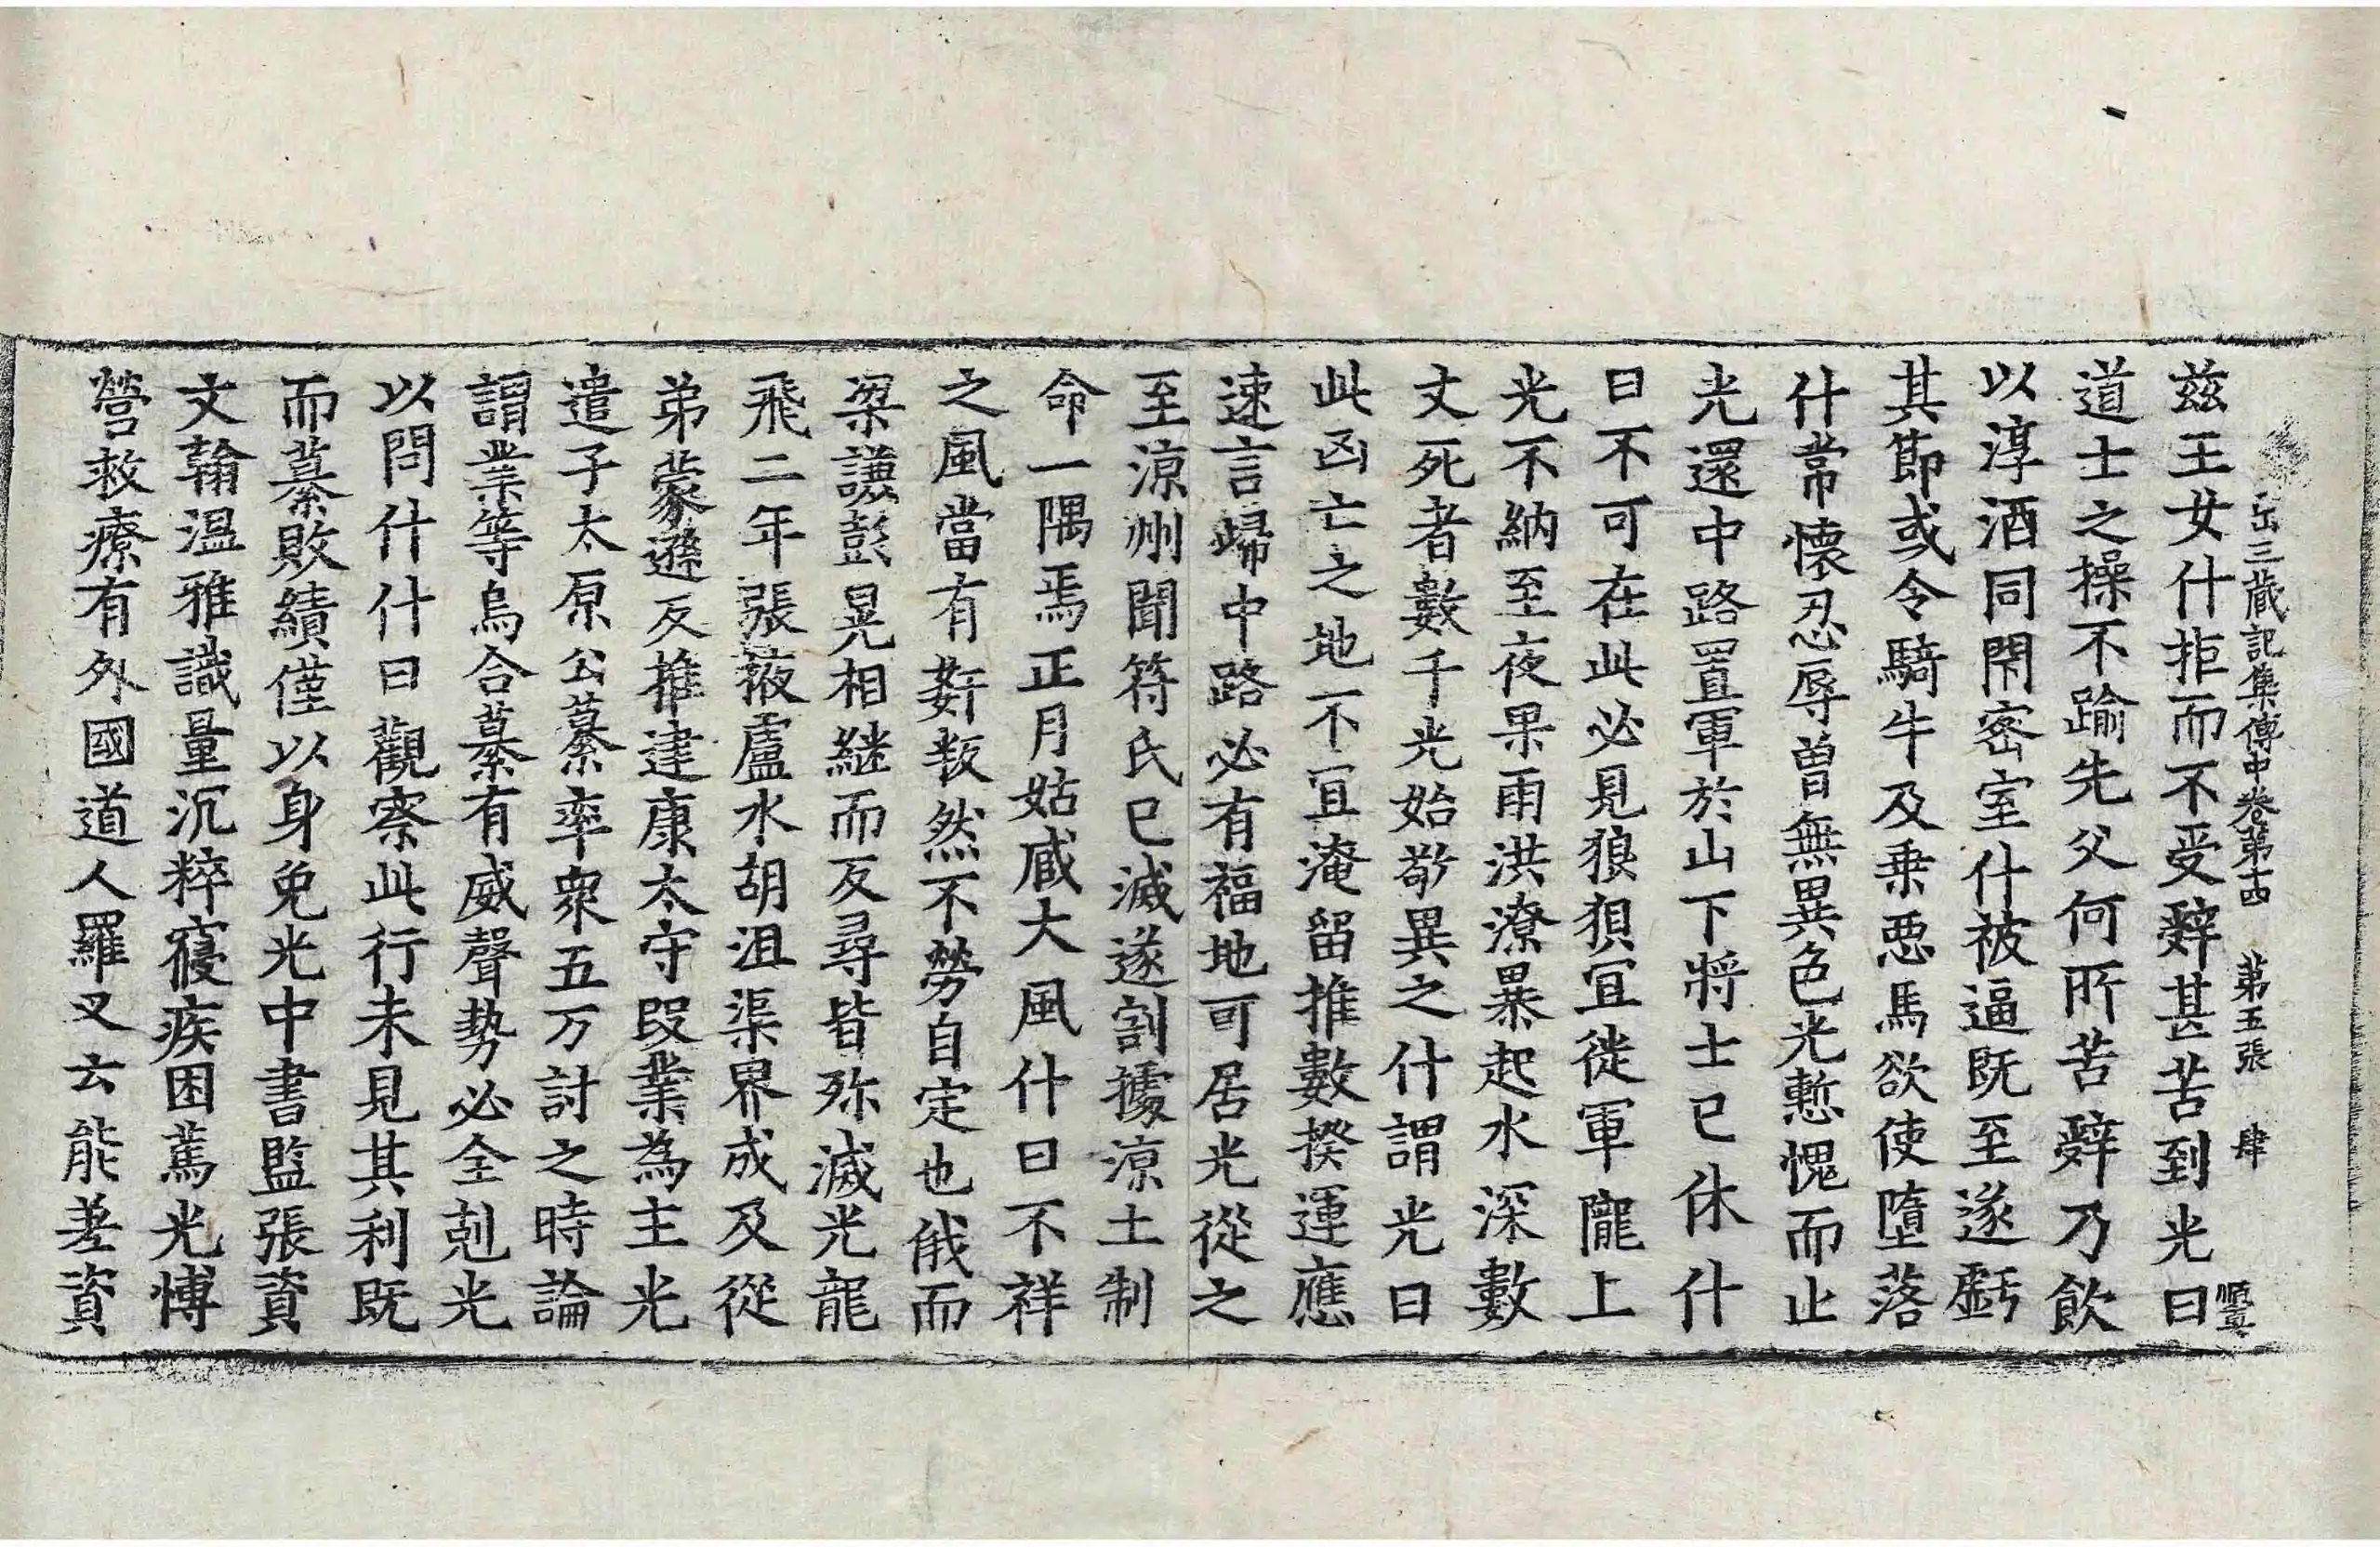 出三藏記集傳中卷第十四 第五張 肆
兹王女什拒而不受辭甚苦到光曰
道士之操不踰先父何所苦辭乃飲
以淳酒同閇密室什被逼既至遂虧
其節或令騎牛及乗惡馬欲使墮落
什常懷忍辱曽無異色光慙愧而止
光還中路置軍於山下將士已休什
曰不可在此必見狼狽宜徙軍隴上
光不納至夜果雨洪潦暴起水深數
丈死者數千光始敬異之什謂光曰
此凶亡之地不宜淹留推數揆運應
速言歸中路必有福地可居光從之
至涼州聞符氏已滅遂割據涼土制
命一隅焉正月姑臧大風什曰不祥
之風當有姧叛然不勞自定也俄而
梁謙彭晃相継而反尋皆殄滅光龍
飛二年張掖盧水胡沮渠男成及從
弟蒙遜反推建康太守段業為主光
遣子太原公纂率衆五万討之時論
謂業等烏合纂有威聲勢必全剋光
以問什什曰觀察此行未見其利既
而纂敗績僅以身免光中書監張資
文翰温雅識量沉粹寢疾困篤光博
營救療有外國道人羅叉云能差資